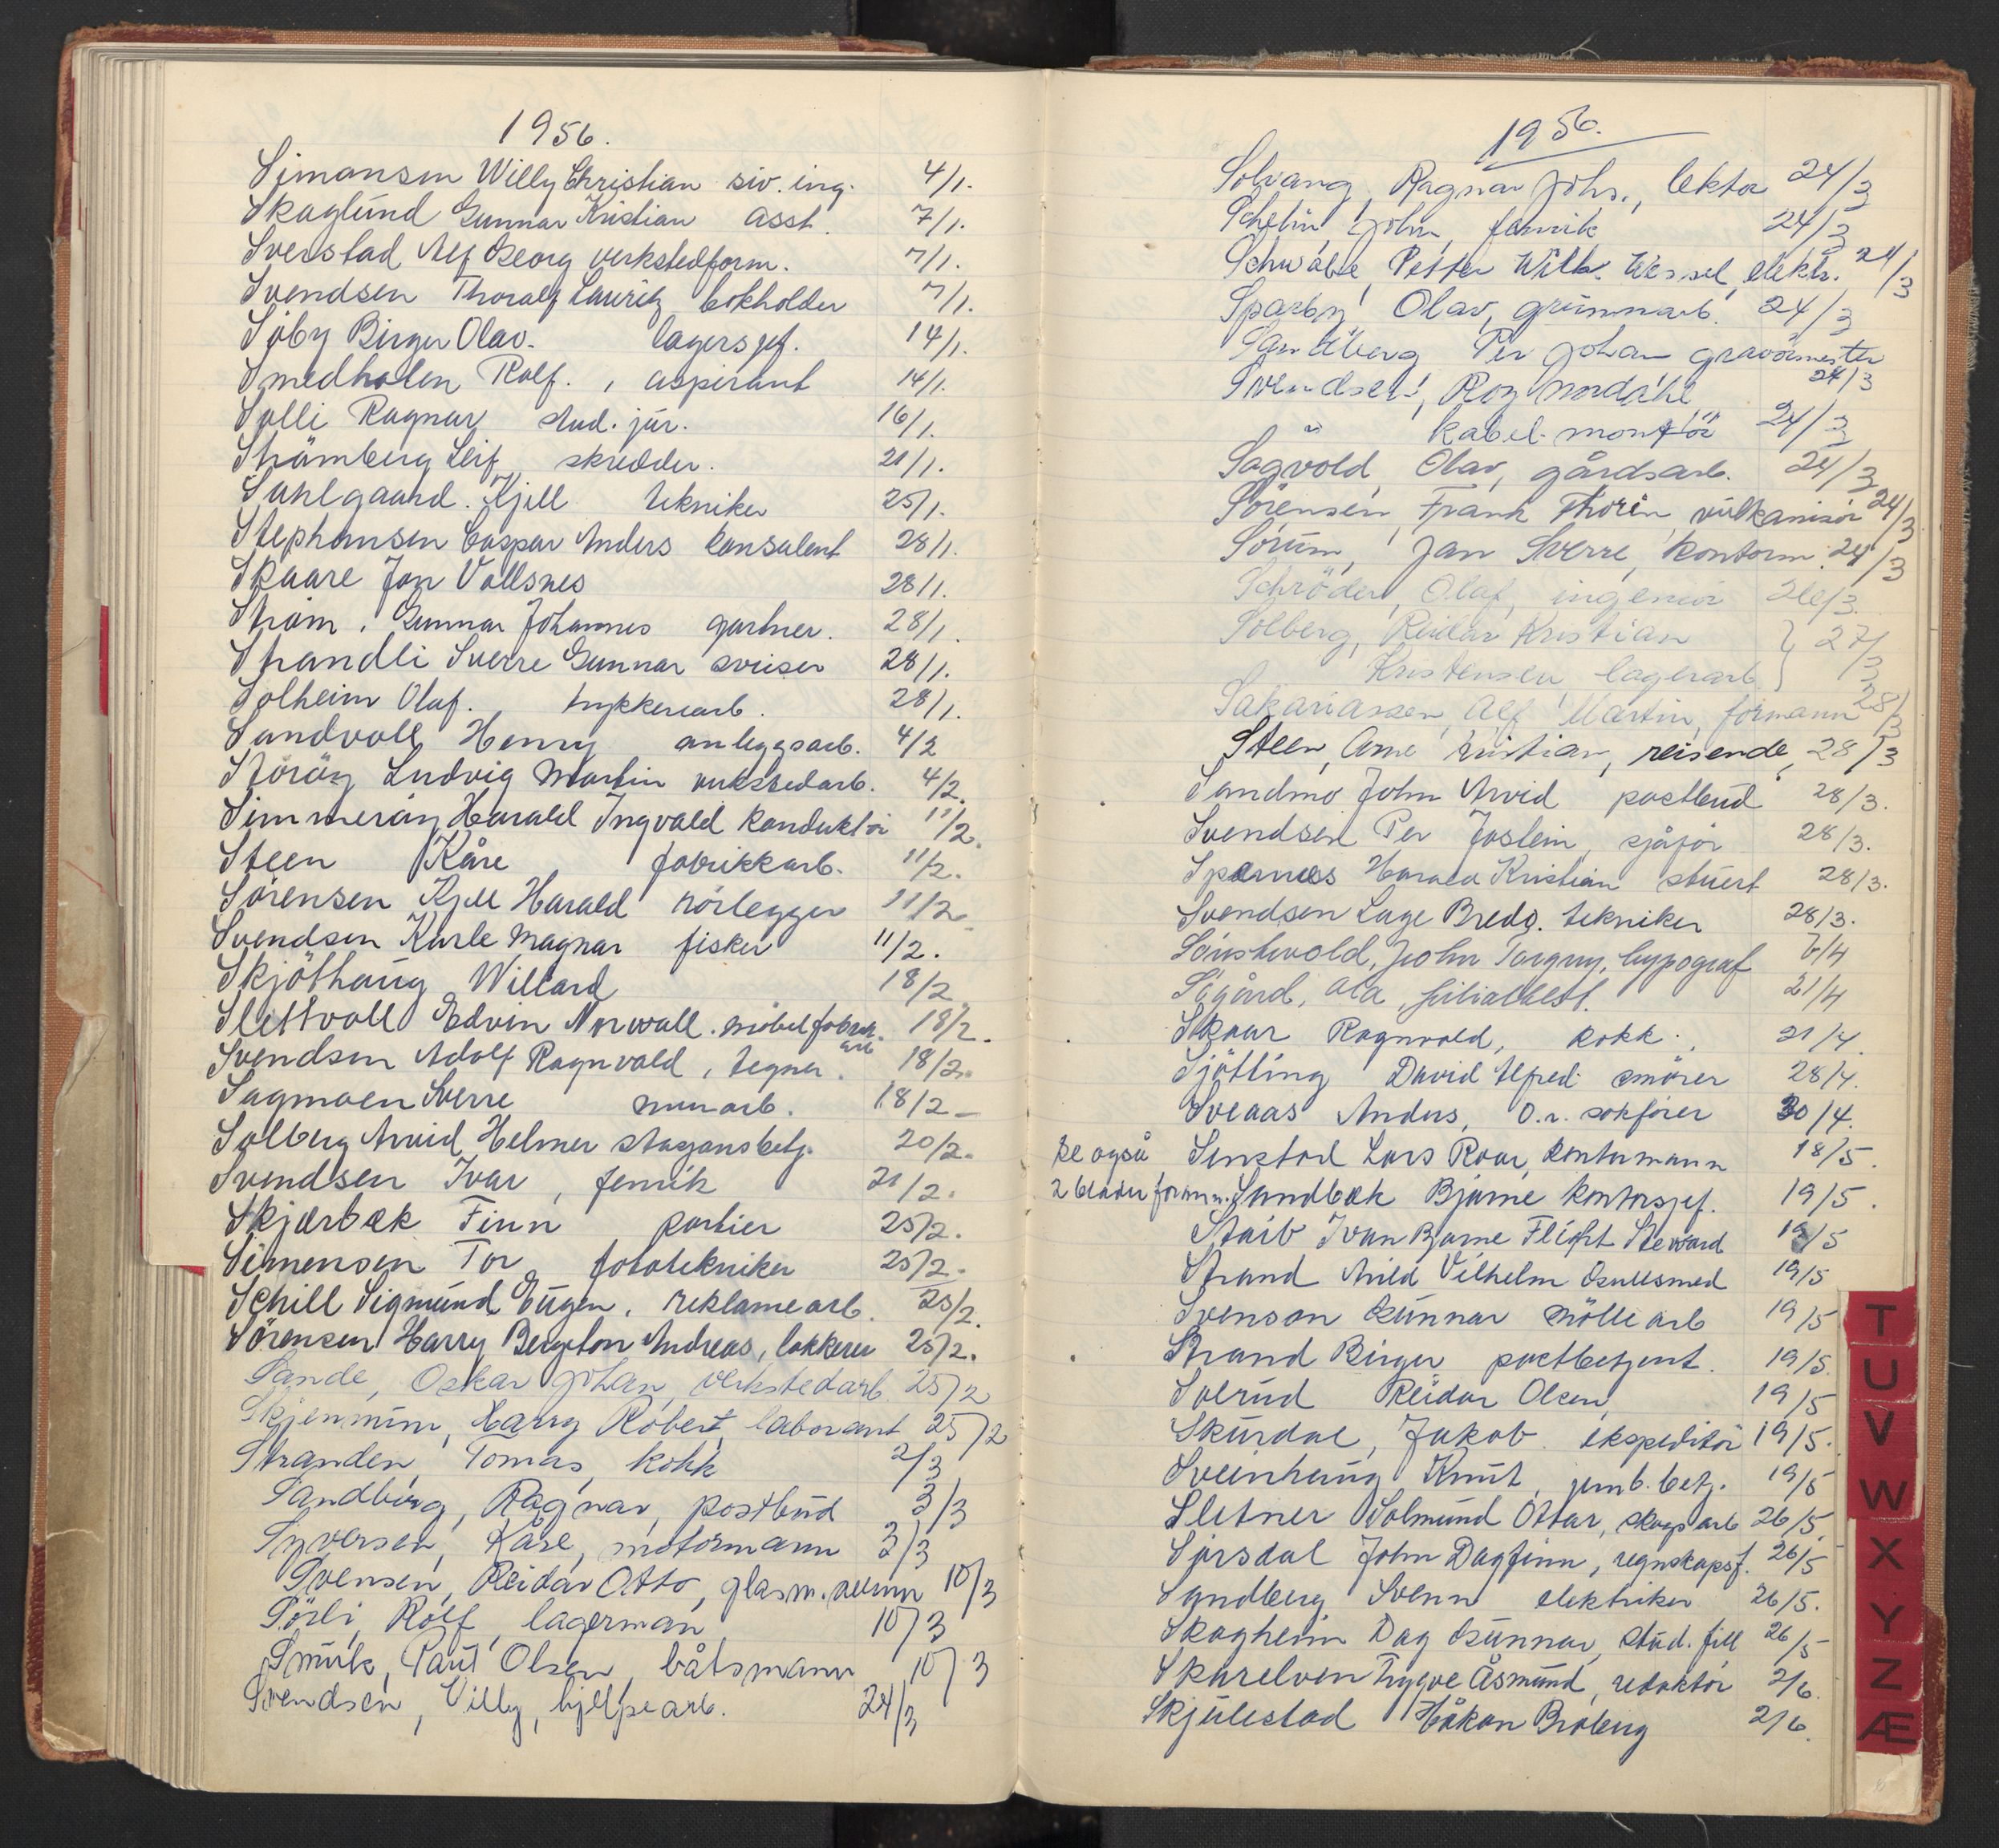 1956.
Simonsen Willy Christian siv. ing. 4/1.
Skoglund Gunnar Kristian asst. 7/1.
Sverstad Alf Georg verkstedform. 7/1.
Svendsen Thoralf Lauritz bokholder 7/1.
Söby Birger Olav. lagersjef. 14/1.
Smedholen Rolf., aspirant 14/1.
Solli Ragnar stud. jur. 16/1.
Strömberg Leif, skredder. 21/1.
Suhlgaard. Kjell tekniker 25/1.
Stephansen Caspar Anders konsulent 28/1.
Skaare Jon Vollsnes 28/1.
Ström, Gunnar Johannes gartner. 28/1.
Strandli Sverre Gunnar sveiser 28/1.
Solheim Olaf. trykkeriarb. 28/1.
Sandvoll Henry anleggsarb. 4/2
Störöy Ludvig Martin verkstedarb. 4/2.
Simmeröy Harald Ingvald Konduktör 11/2.
Steen Kåre fabrikkarb. 11/2.
Sörensen Kjell Harald rörlegger 11/2
Svendsen Kårle Magnar fisker 11/2.
Skjöthaug Willard 18/2.
Slettvoll Edvin Norvall. möbelfabrik. arb 18/2.
Svendsen Adolf Ragnvald, tegner. 18/2.
Sagmoen Sverre murarb. 18/2
Solberg Arvid Helmer stasjonsbetj. 20/2.
Svendsen Ivar, fenrik 21/2.
Skjærbæk Finn portier 25/2.
Simensen Tor fototekniker 25/2.
Schill Sigmund Eugen. reklamearb. 25/2.
Sörensen Harry Bergeton Andreas, lakkerer 25/2.
Sande, Oskar Johan, verkstedarb. 25/2
Skjennum, Harry Robert, laborant 25/2
Stranden, Tomas, kokk 2/3
Sandberg, Ragnar, postbud 3/3
Syversen, Kåre, motormann 3/3
Svensen, Reidar Otto, glasm. 10/3
Sörli, Rolf, lagerman 10/3
Smuk, Paul Olsen, båtsmann 10/3
Svendsen, Villy, hjelpearb. 24/3
1956.
Solvang, Ragnar Johs., lektor 24/3
Schelin, John, fenrik 24/3
Schwabe, Petter Wilh. Wessel, elektr. 24/3
Sparby, Olav, grunnarb. 24/3
Sandberg Per Johan gravörmester 24/3
Svendsen, Roy Nordahl
kabel-montör 24/3
Sagvold, Olav, gårdsarb. 24/3
Sörensen, Frank Thorén, vulkanisör 24/3
Sörum, Jan Sverre, kontorm. 24/3
Schröder, Olaf, ingeniör 26/3.
Solberg, Reidar Kristian } 27/3
Kristensen, lagerarb }
Sakariassen, Alf Martin, formann 28/3
Steen, Arne Kristian, reisende, 28/3
Sandmo John Arvid postbud 28/3.
Svendsen Per Jostein, sjåför 28/3.
Spernes Harald Kristian stuert 28/3.
Svendsen Lage Bredo. tekniker 28/3.
John Torgny, typograf 6/4
Sögård, Ola, filialbest. 21/4
Skaar Ragnvald, kokk. 21/4.
Sjötling David Alfred smörer 28/4.
Sveaas Anders, O.r. sakförer 30/4.
se også Sinstad Lars Roar, kontormann 18/5.
2 blader foran. Sandbæk Bjarne kontorsjef. 19/5.
Staib Ivan Bjarne Flight Steward 19/5
Strand Arild Vilhelm Gullsmed 19/5
Svenson Gunnar möllearb 19/5
Strand Birger postbetjent. 19/5
Solrud Reidar Olsen, 19/5
Skurdal, Jakob ekspeditör 19/5.
Sveinhaug Knut, jernb. betj. 19/5
Sletner Solmund Ottar, skogsarb 26/5.
Sörsdal John Dagfinn, regnskapsf. 26/5
Sandberg Svenn elektriker 26/5.
Skogheim Dag Gunnar, stud. fill 26/5
Skarelven Trygve Åsmund, redaktör 2/6.
Skjulestad Håkon Broberg 2/6.
T
U
V
W
X
Y
Z
Æ